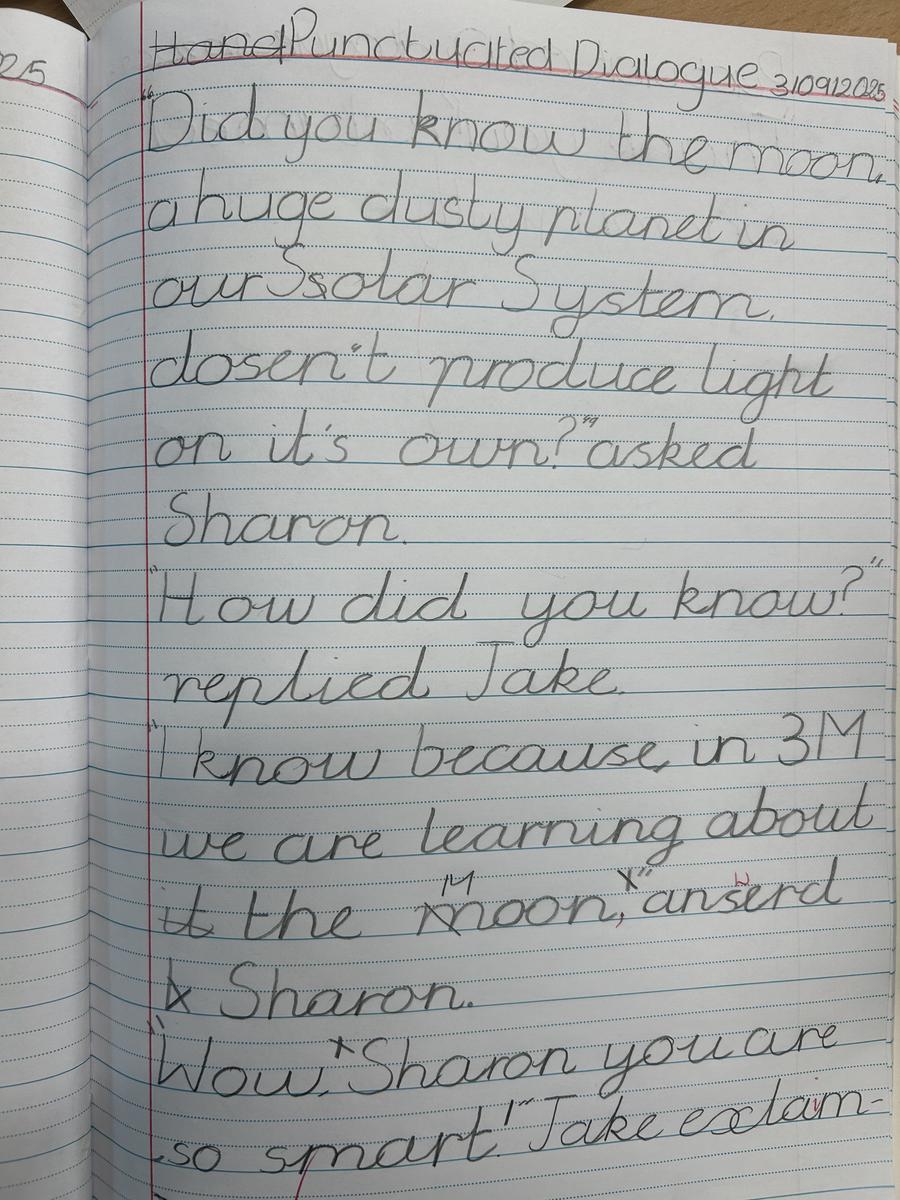 25
Hand Punctuated Dialogue 3/09/2025
"Did you know the moon,
a huge dusty planet in
our Ssolar System,
dosen't produce light
on it's own?" asked
Sharon.
"How did you know?"
replied Jake.
"I know because, in 3M
we are learning about
it the Moon," anserd
Sharon.
"Wow, Sharon you are
so smart!" Jake exlaim-